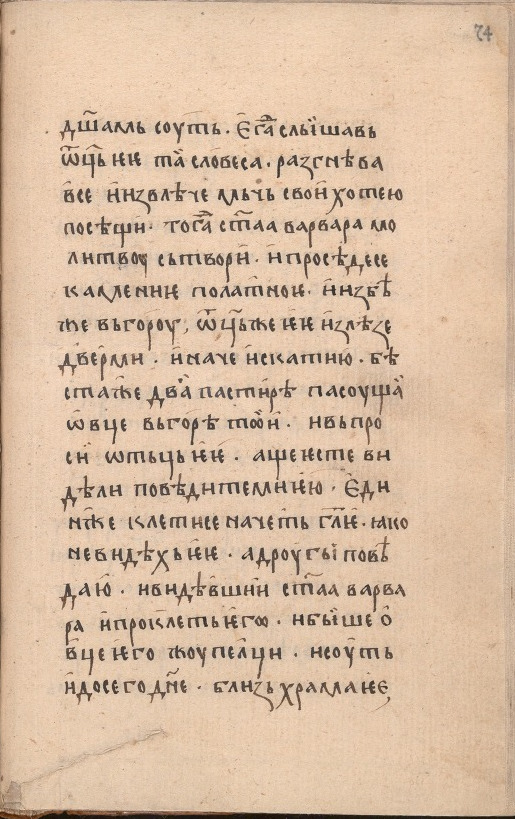 74
дш҃амь соуть · Е҆гⷣа слы́шавь
ѿц҃ь ѥѥ та̀ словеса · разгнѣва
в҆се и҆ извлѣче мьчь свои҆ хотею
посѣщи · тогⷣа ст҃аа варвара мо
литвоу сьтвори҆ · и҆ просѣдесе
камение полатноѥ · и҆ избѣ
же вь гороу , ѿц҃ь же ѥѥ и҆злѣзе
д҆верми · и҆ наче и҆скатию · бѣ
ста же два̀ пастирѣ пасоуща̀
ѡ҆вце вь горѣ тѡи҆ · и вьпро
си҆ ѡтьць ѥѥ · аще ѥсте ви
дѣли повѣдите ми ю҆ · Е҆ди
нже клетисе начеть гл҃ѥ · ꙗко
не видѣхь ѥѥ · а дроугы́ повѣ
даю҆ · и видѣвши́и ст҃аа варва
ра и҆ проклеть ѥгѡ · и бы́ше о҆
в҆це ѥго жоупелци · и соуть
и҆ до сего дн҃е · близь храма ѥе,